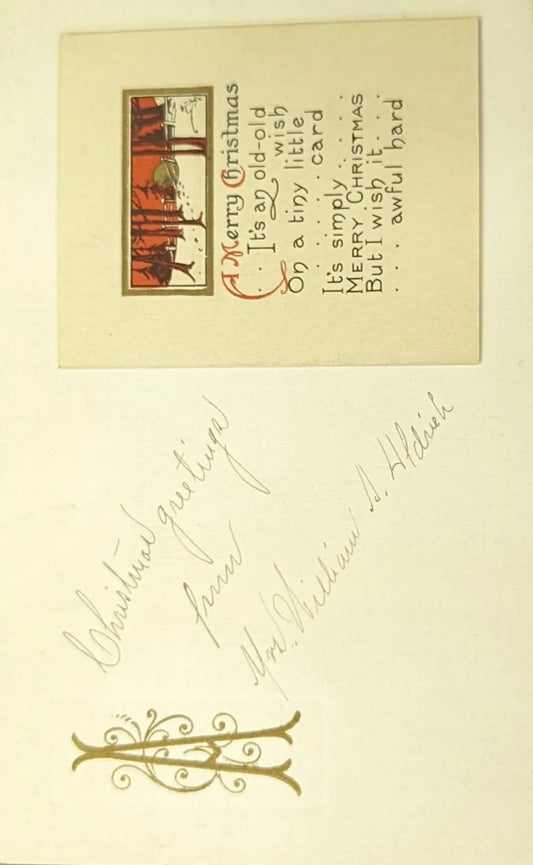 A Merry Christmas
. . It's an old-old
wish
On a tiny little
. . . . . . card
It's simply . . . . .
MERRY CHRISTMAS
But I wish it . . .
. . . awful hard
A
Christmas greetings
from
Mrs. William S. Aldrich